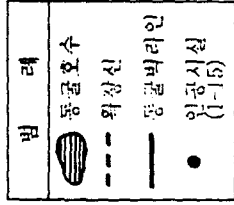 범 례
동굴호수
확장선
동굴벽라인
인공시설
(1-15)